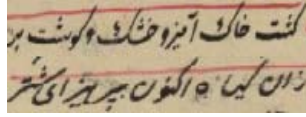 گشت خاک آمیز و خشک و گوشت بر
زان گیاه اکنون بپرهیز ای شتر